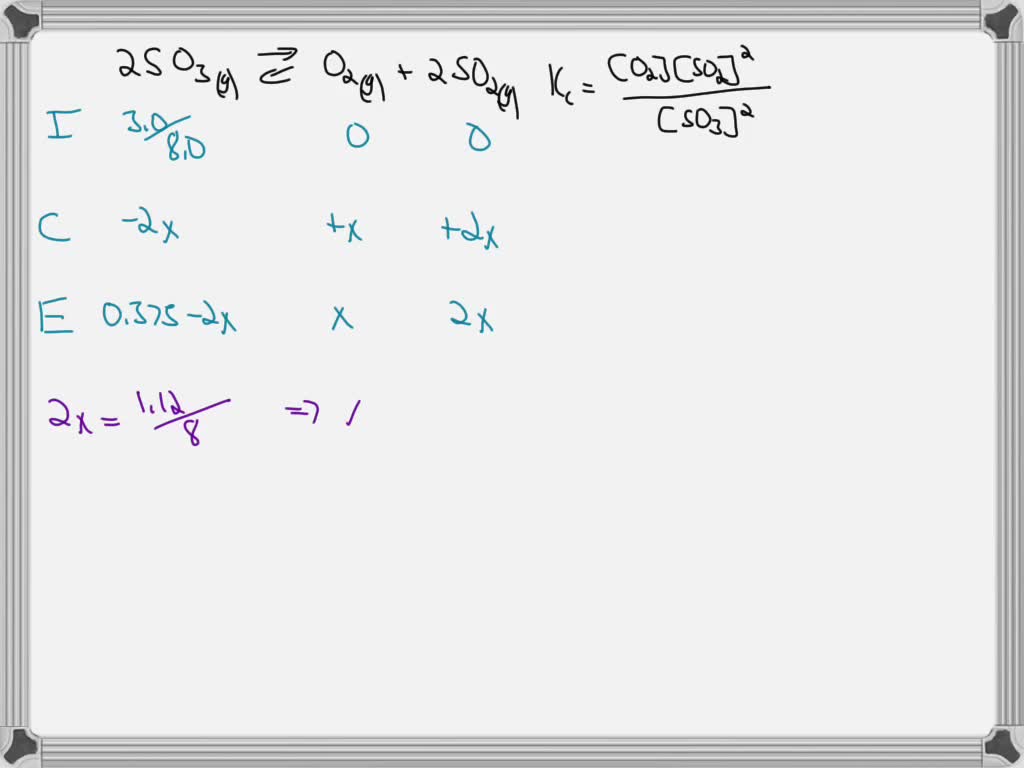 2SO₃(g) ⇌ O₂(g) + 2SO₂(g) Kc = [O₂][SO₂]² / [SO₃]²
I 3.0/8.0 0 0
C -2x +x +2x
E 0.375-2x x 2x
2x = 1.12/8 =>